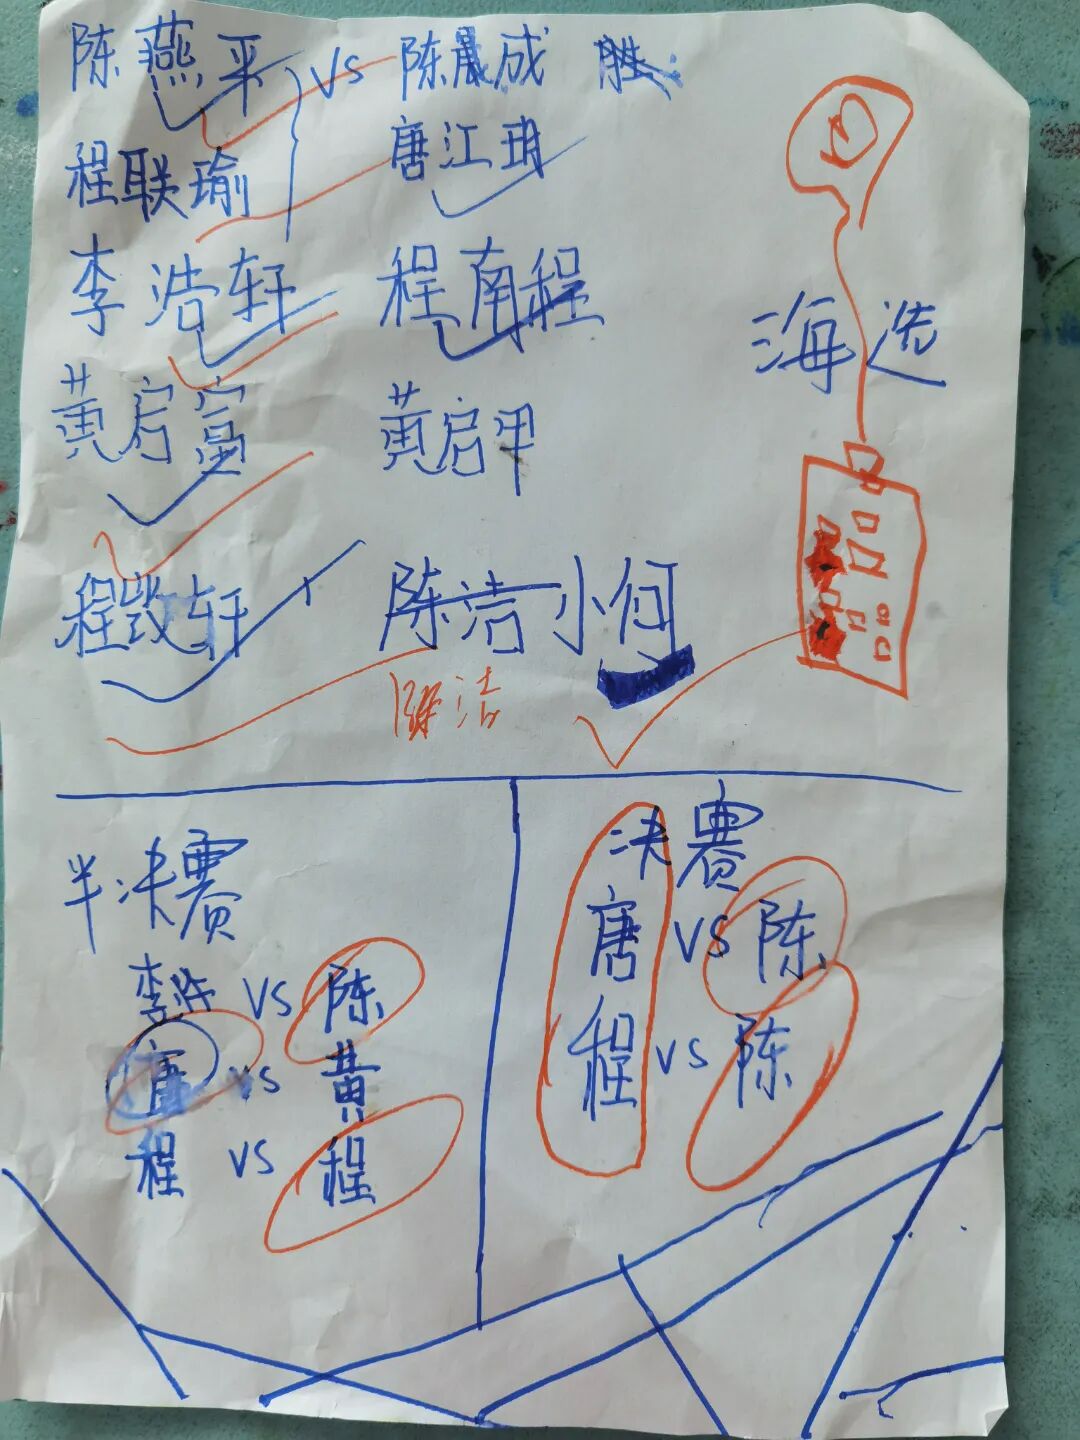 陈燕平 VS 陈晟成 胜
程联瑜 唐江玥
李浩轩 程南程
海选
黄启富 黄启甲
程毅轩 陈洁 小何
陈洁
半决赛
李 VS 陈
唐 VS 黄
程 VS 程
决赛
唐 VS 陈
程 VS 陈